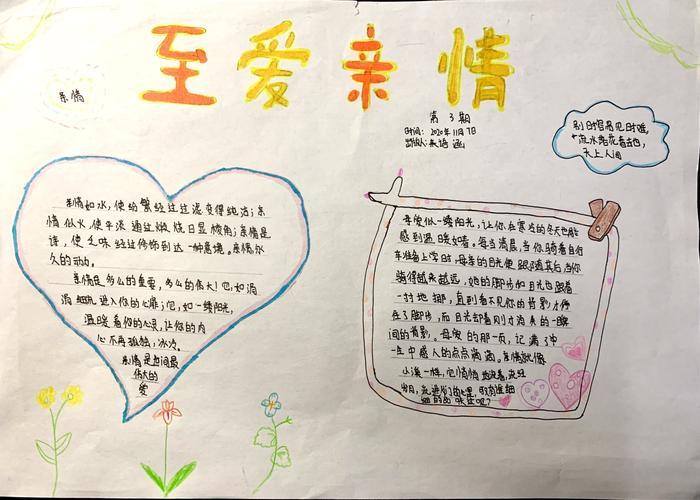 至爱亲情
亲情
第3期
时间：2020年11月7日
别时容易见时难，
流水落花春去也，
天上人间
亲情如水，使纷繁经过过滤变得纯洁；亲
情似火，使平淡通过煅烧日显棱角；亲情是
诗，使乏味经过修饰到达一种意境。亲情永
久的动力。
亲情是多么的重要，多么的伟大！它，如涓
涓细流，进入你的心扉；它，如一缕阳光，
温暖着你的心灵，让你的内
心不再孤独，冰冷。
亲情是世间最
伟大的
爱
母爱似一缕阳光，让你在寒冷的冬天也能
感到温暖如春。每当清晨，当你骑着自行
车准备上学时，母亲的目光便跟随其后，当你
骑得越来越远，她的脚步和目光也跟着
一封地挪，直到看不见你的背影，才停
住了脚步，而目光却看刚才消失的一瞬
间的背影。母爱的那一页，记满了中
一生中感人的点点滴滴。亲情就像
山溪一样，它悄悄地流着，流经
岁月，流进们的心里，